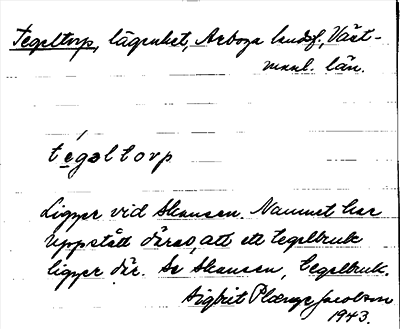 Tegeltorp, lägenhet, Arboga landsf., Väst-
manl. län.
tegəltorp
Ligger vid Skansen. Namnet har
uppstått därav, att ett tegelbruk
ligger där. Se Skansen, tegelbruk.
Sigbrit Plænge Jacobson
1943.